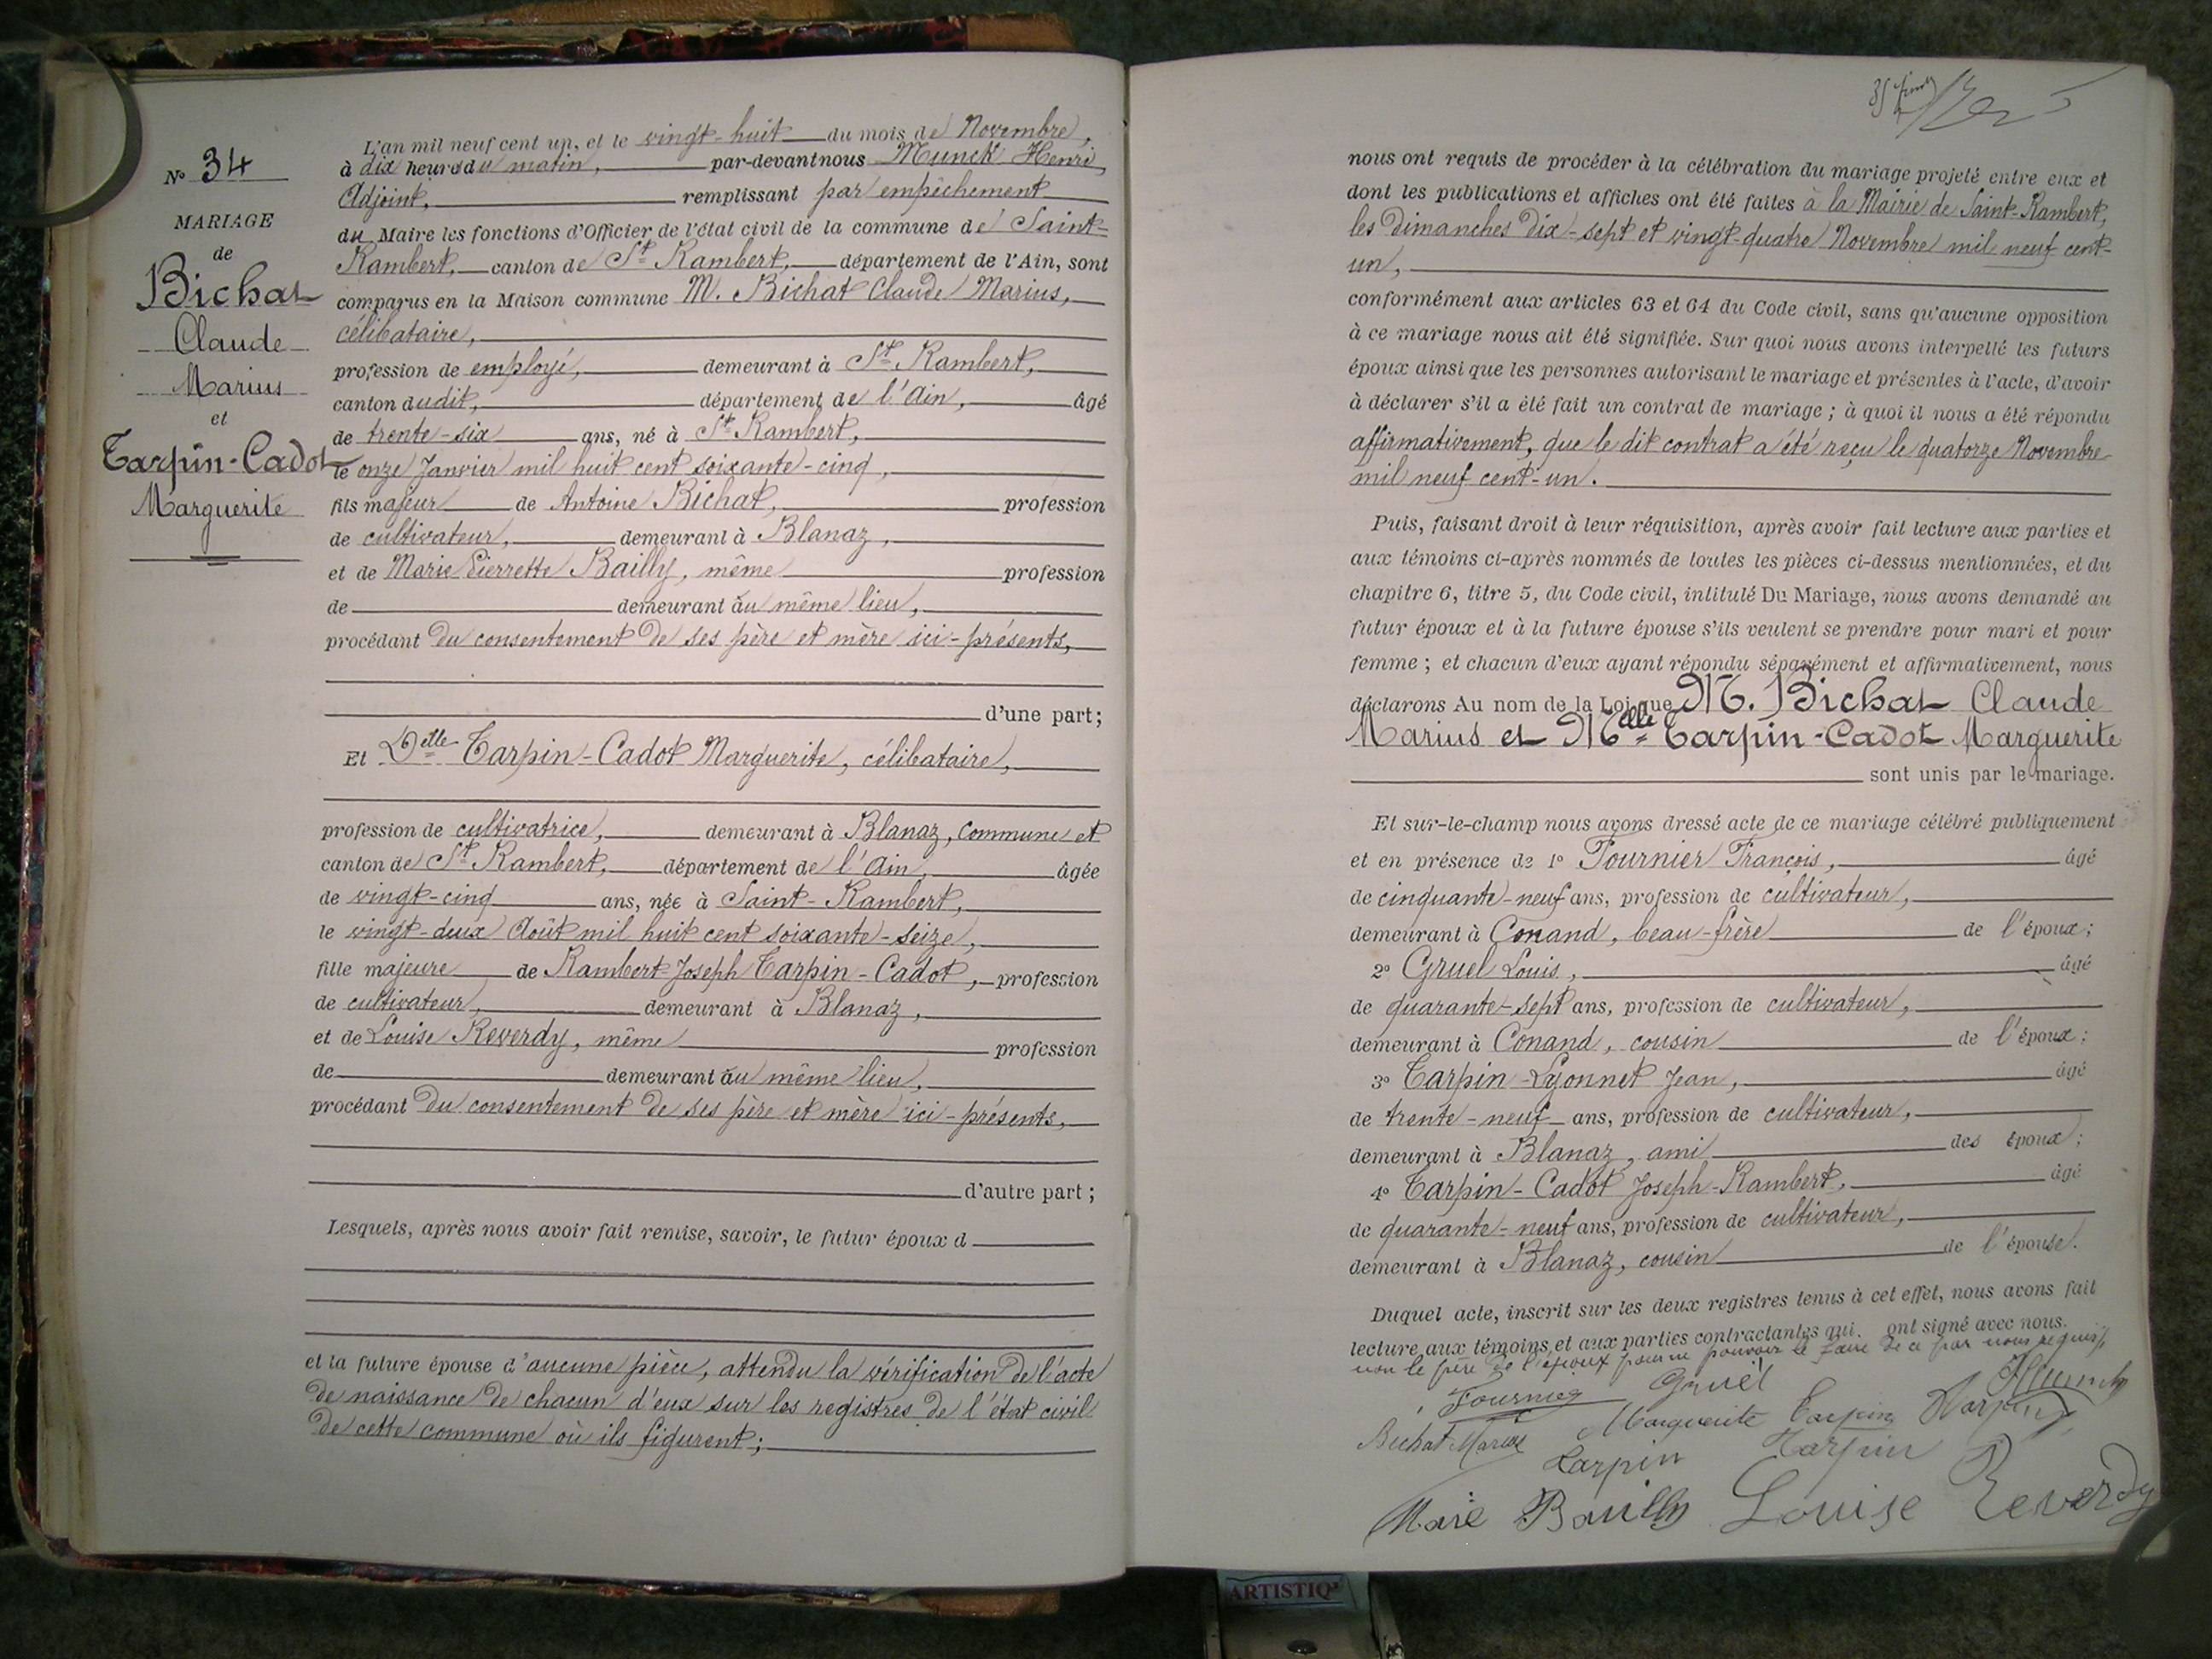 N° 34
MARIAGE
de
Bichat
Claude
Marius
et
Tarpin-Cadot
Marguerite
L'an mil neuf cent un, et le vingt-huit du mois de Novembre,
à dix heures du matin, par-devant nous Munck Henri
Adjoint, remplissant par empêchement
du Maire les fonctions d'Officier de l'état civil de la commune de Saint-
Rambert, canton de St Rambert, département de l'Ain, sont
comparus en la Maison commune M. Bichat Claude Marius,
célibataire,
profession de employé, demeurant à St Rambert,
canton dudit, département de l'Ain, âgé
de trente-six ans, né à St Rambert,
le onze Janvier mil huit cent soixante-cinq,
fils majeur de Antoine Bichat, profession
de cultivateur, demeurant à Blanaz,
et de Marie Pierrette Bailly, même profession
de demeurant au même lieu,
procédant du consentement de ses père et mère ici-présents,
d'une part;
Et Delle Tarpin-Cadot Marguerite, célibataire,
profession de cultivatrice, demeurant à Blanaz, commune et
canton de St Rambert, département de l'Ain, âgée
de vingt-cinq ans, née à Saint-Rambert,
le vingt-deux Août mil huit cent soixante-seize,
fille majeure de Rambert-Joseph Tarpin-Cadot, profession
de cultivateur, demeurant à Blanaz,
et de Louise Reverdy, même profession
de demeurant au même lieu,
procédant du consentement de ses père et mère ici-présents,
d'autre part;
Lesquels, après nous avoir fait remise, savoir, le futur époux d
et la future épouse d'aucune pièce, attendu la vérification de l'acte
de naissance de chacun d'eux sur les registres de l'état civil
de cette commune où ils figurent;
nous ont requis de procéder à la célébration du mariage projeté entre eux et
dont les publications et affiches ont été faites à la Mairie de Saint-Rambert,
les dimanches dix-sept et vingt-quatre Novembre mil neuf cent-
un,
conformément aux articles 63 et 64 du Code civil, sans qu'aucune opposition
à ce mariage nous ait été signifiée. Sur quoi nous avons interpellé les futurs
époux ainsi que les personnes autorisant le mariage et présentes à l'acte, d'avoir
à déclarer s'il a été fait un contrat de mariage; à quoi il nous a été répondu
affirmativement, que le dit contrat a été reçu le quatorze Novembre
mil neuf cent-un.
Puis, faisant droit à leur réquisition, après avoir fait lecture aux parties et
aux témoins ci-après nommés de toutes les pièces ci-dessus mentionnées, et du
chapitre 6, titre 5, du Code civil, intitulé Du Mariage, nous avons demandé au
futur époux et à la future épouse s'ils veulent se prendre pour mari et pour
femme; et chacun d'eux ayant répondu séparément et affirmativement, nous
déclarons Au nom de la Loi que M. Bichat Claude
Marius et Melle Tarpin-Cadot Marguerite
sont unis par le mariage.
Et sur-le-champ nous avons dressé acte de ce mariage célébré publiquement
et en présence de 1° Fournier François, âgé
de cinquante-neuf ans, profession de cultivateur,
demeurant à Conand, beau-frère de l'époux;
2° Gruel Louis, âgé
de quarante-sept ans, profession de cultivateur,
demeurant à Conand, cousin de l'époux;
3° Tarpin-Lyonnet Jean, âgé
de trente-neuf ans, profession de cultivateur,
demeurant à Blanaz, ami des époux;
4° Tarpin-Cadot Joseph-Rambert, âgé
de quarante-neuf ans, profession de cultivateur,
demeurant à Blanaz, cousin de l'épouse.
Duquel acte, inscrit sur les deux registres tenus à cet effet, nous avons fait
lecture aux témoins et aux parties contractantes qui ont signé avec nous.
non le père de l'époux pour ne pouvoir le faire de ce par nous requis
Fournier Gruel HMunck
Bichat Marius Marguerite Tarpin Tarpin
Tarpin Tarpin
Marie Bailly Louise Reverdy
ARTISTIQ